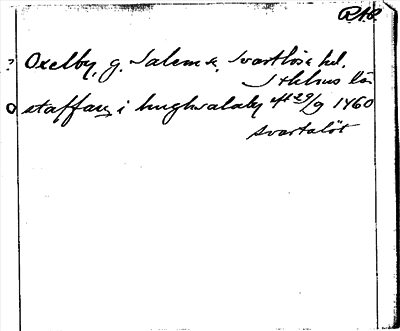 RAp.
? Oxelby, g. Salem s., Svartlösa hd.
Sthlms län
staffan i hughvalaby 29/9 1460
svartalöt